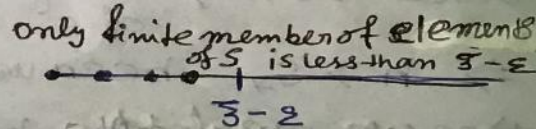 only finite member of elements
of S is less than ξ - ε
ξ - ε